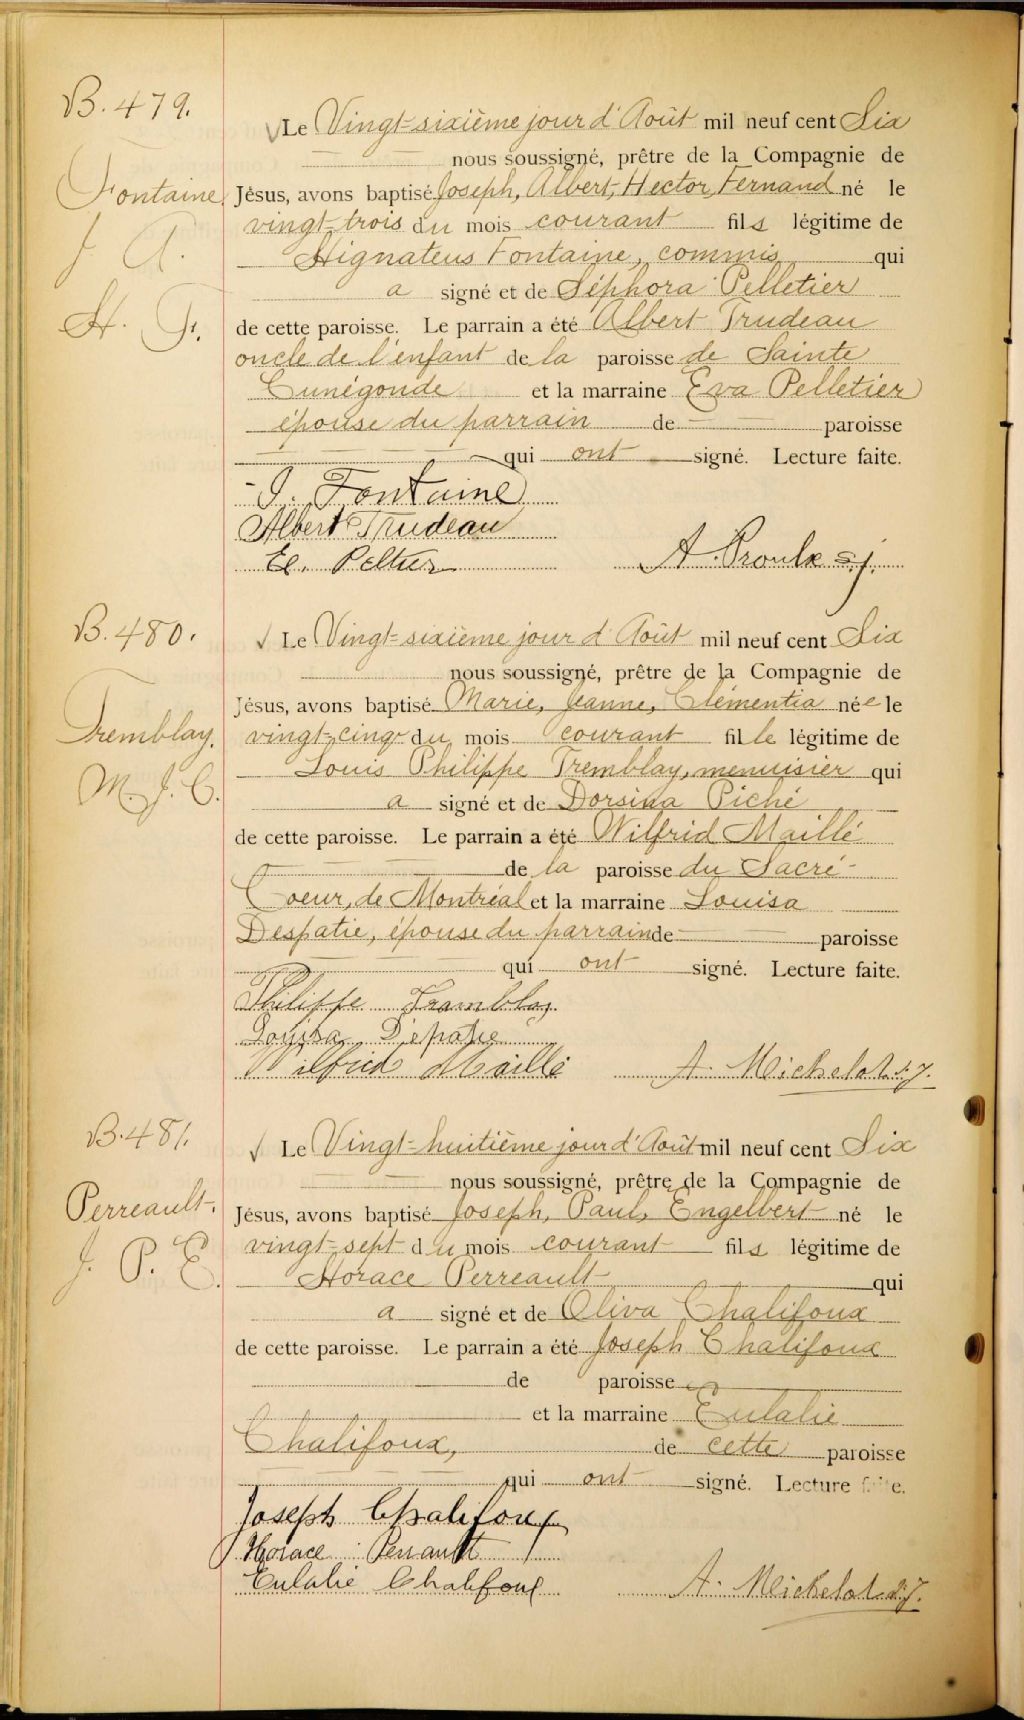 B. 479.
Fontaine,
J. A.
H. F.
Le Vingt-sixième jour d'Août mil neuf cent Six
nous soussigné, prêtre de la Compagnie de
Jésus, avons baptisé Joseph, Albert, Hector, Fernand né le
vingt-trois du mois courant fils légitime de
Hignateus Fontaine, commis qui
a signé et de Séphora Pelletier
de cette paroisse. Le parrain a été Albert Trudeau
oncle de l'enfant de la paroisse de Sainte
Cunégonde et la marraine Eva Pelletier
épouse du parrain de paroisse
qui ont signé. Lecture faite.
I. Fontaine
Albert Trudeau
E. Peltier
A. Proulx s.j.
B. 480.
Tremblay.
M. J. C.
Le Vingt-sixième jour d'Août mil neuf cent Six
nous soussigné, prêtre de la Compagnie de
Jésus, avons baptisé Marie, Jeanne, Clémentia née le
vingt-cinq du mois courant fille légitime de
Louis Philippe Tremblay, menuisier qui
a signé et de Dorsina Piché
de cette paroisse. Le parrain a été Wilfrid Maillé
de la paroisse du Sacré-
Coeur, de Montréal et la marraine Louisa
Despatie, épouse du parrain de paroisse
qui ont signé. Lecture faite.
Philippe Tramblay
Louisa Dépatie
Wilfrid Maillé
A. Michelot s.j.
B. 481.
Perreault.
J. P. E.
Le Vingt-huitième jour d'Août mil neuf cent Six
nous soussigné, prêtre de la Compagnie de
Jésus, avons baptisé Joseph, Paul, Engelbert né le
vingt-sept du mois courant fils légitime de
Horace Perreault qui
a signé et de Oliva Chalifoux
de cette paroisse. Le parrain a été Joseph Chalifoux
de paroisse
et la marraine Eulalie
Chalifoux, de cette paroisse
qui ont signé. Lecture faite.
Joseph Chalifoux
Horace Perrault
Eulalie Chalifoux
A. Michelot s.j.